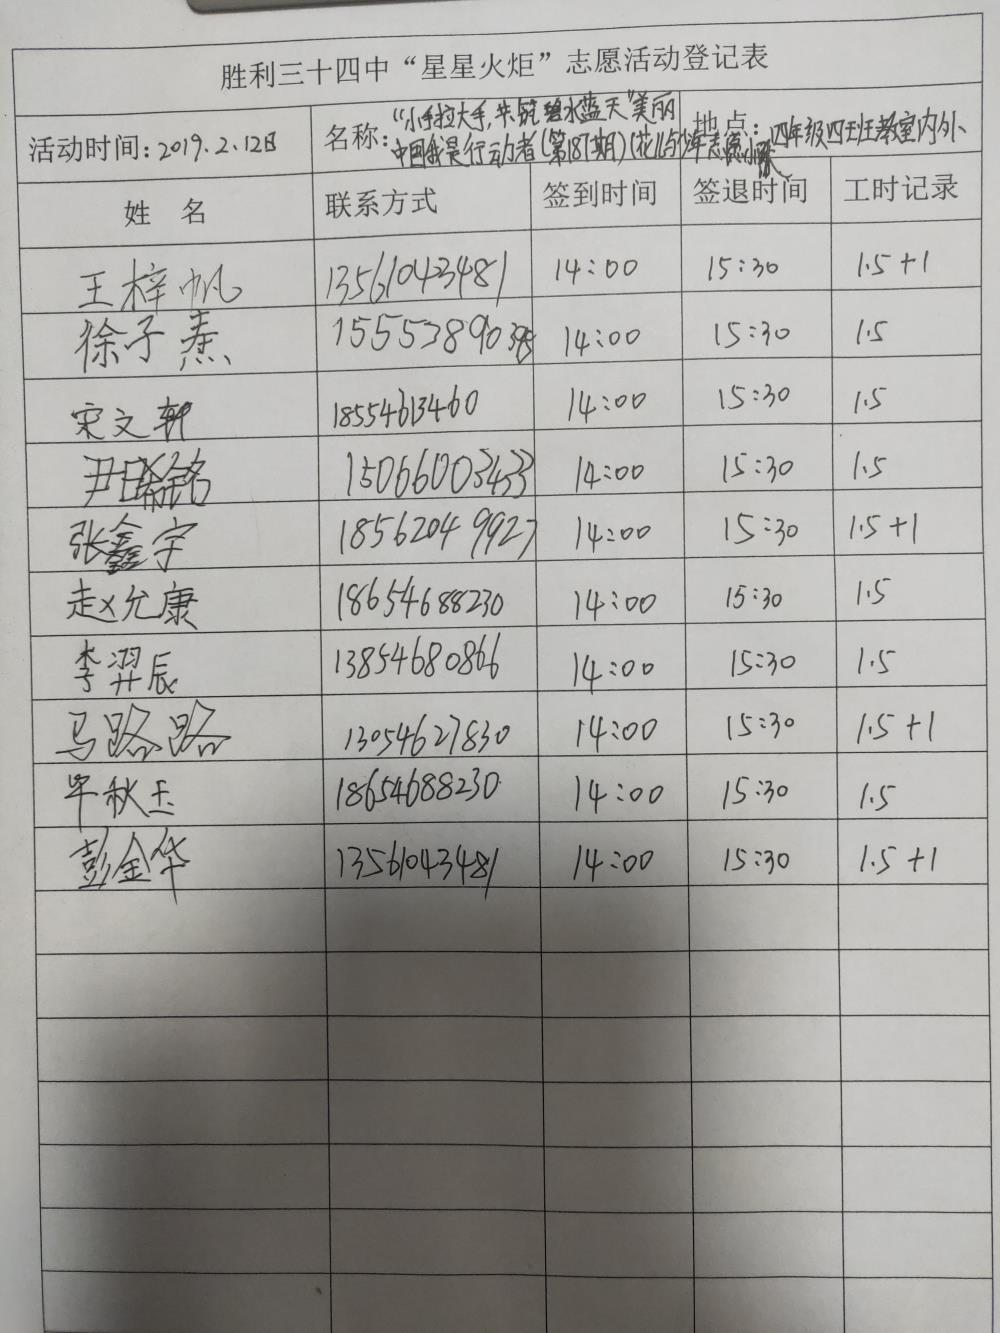 胜利三十四中“星星火炬”志愿活动登记表
活动时间:2019.2.12日 名称:“小手拉大手,共筑碧水蓝天”美丽中国我是行动者(第181期)(花儿与少年志愿小队) 地点:四年级四班班教室内外、
姓 名 联系方式 签到时间 签退时间 工时记录
王梓帆 13561043481 14:00 15:30 1.5+1
徐子焘 15553890 14:00 15:30 1.5
宋文轩 18554613460 14:00 15:30 1.5
尹 铭 15066003433 14:00 15:30 1.5
张鑫宇 18562049927 14:00 15:30 1.5+1
赵允康 18654688230 14:00 15:30 1.5
李羿辰 13854680866 14:00 15:30 1.5
马路路 13054627830 14:00 15:30 1.5+1
毕秋玉 18654688230 14:00 15:30 1.5
彭金华 13561043481 14:00 15:30 1.5+1